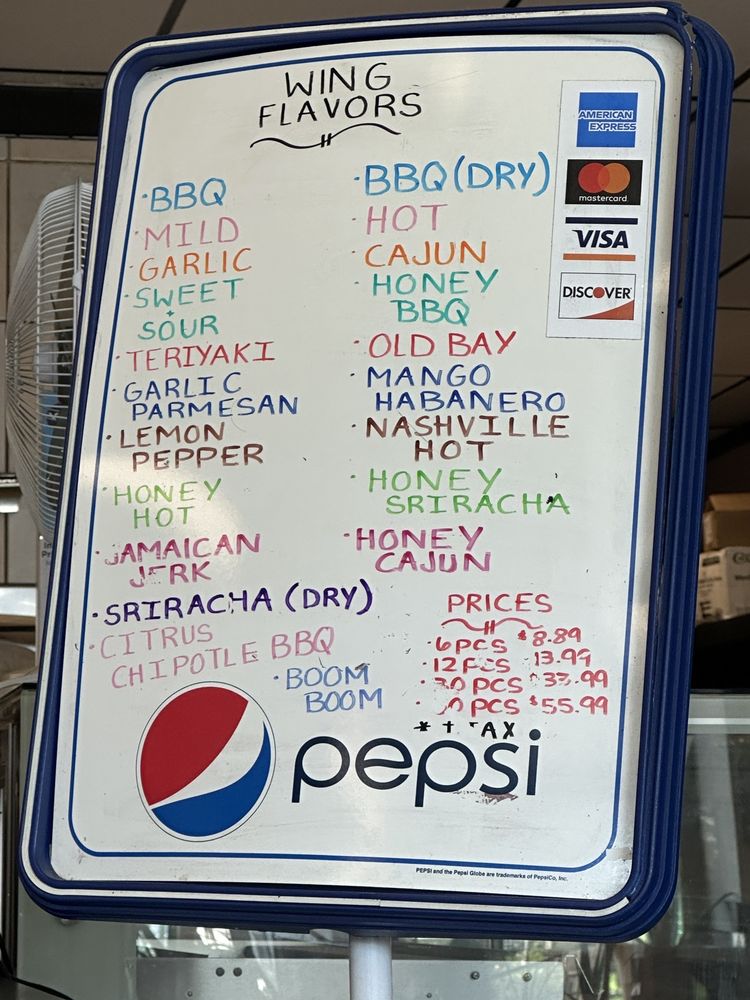 WING
FLAVORS
AMERICAN
EXPRESS
mastercard
VISA
DISCOVER
· BBQ
· MILD
· GARLIC
· SWEET
+
SOUR
· TERIYAKI
· GARLIC
PARMESAN
· LEMON
PEPPER
· HONEY
HOT
· JAMAICAN
JERK
· SRIRACHA (DRY)
· CITRUS
CHIPOTLE BBQ
· BOOM
BOOM
· BBQ (DRY)
· HOT
· CAJUN
· HONEY
BBQ
· OLD BAY
· MANGO
HABANERO
· NASHVILLE
HOT
· HONEY
SRIRACHA
· HONEY
CAJUN
PRICES
· 6 PCS $8.89
· 12 PCS 13.99
· 30 PCS $33.99
· 0 PCS $55.99
* + TAX
pepsi
PEPSI and the Pepsi Globe are trademarks of PepsiCo, Inc.